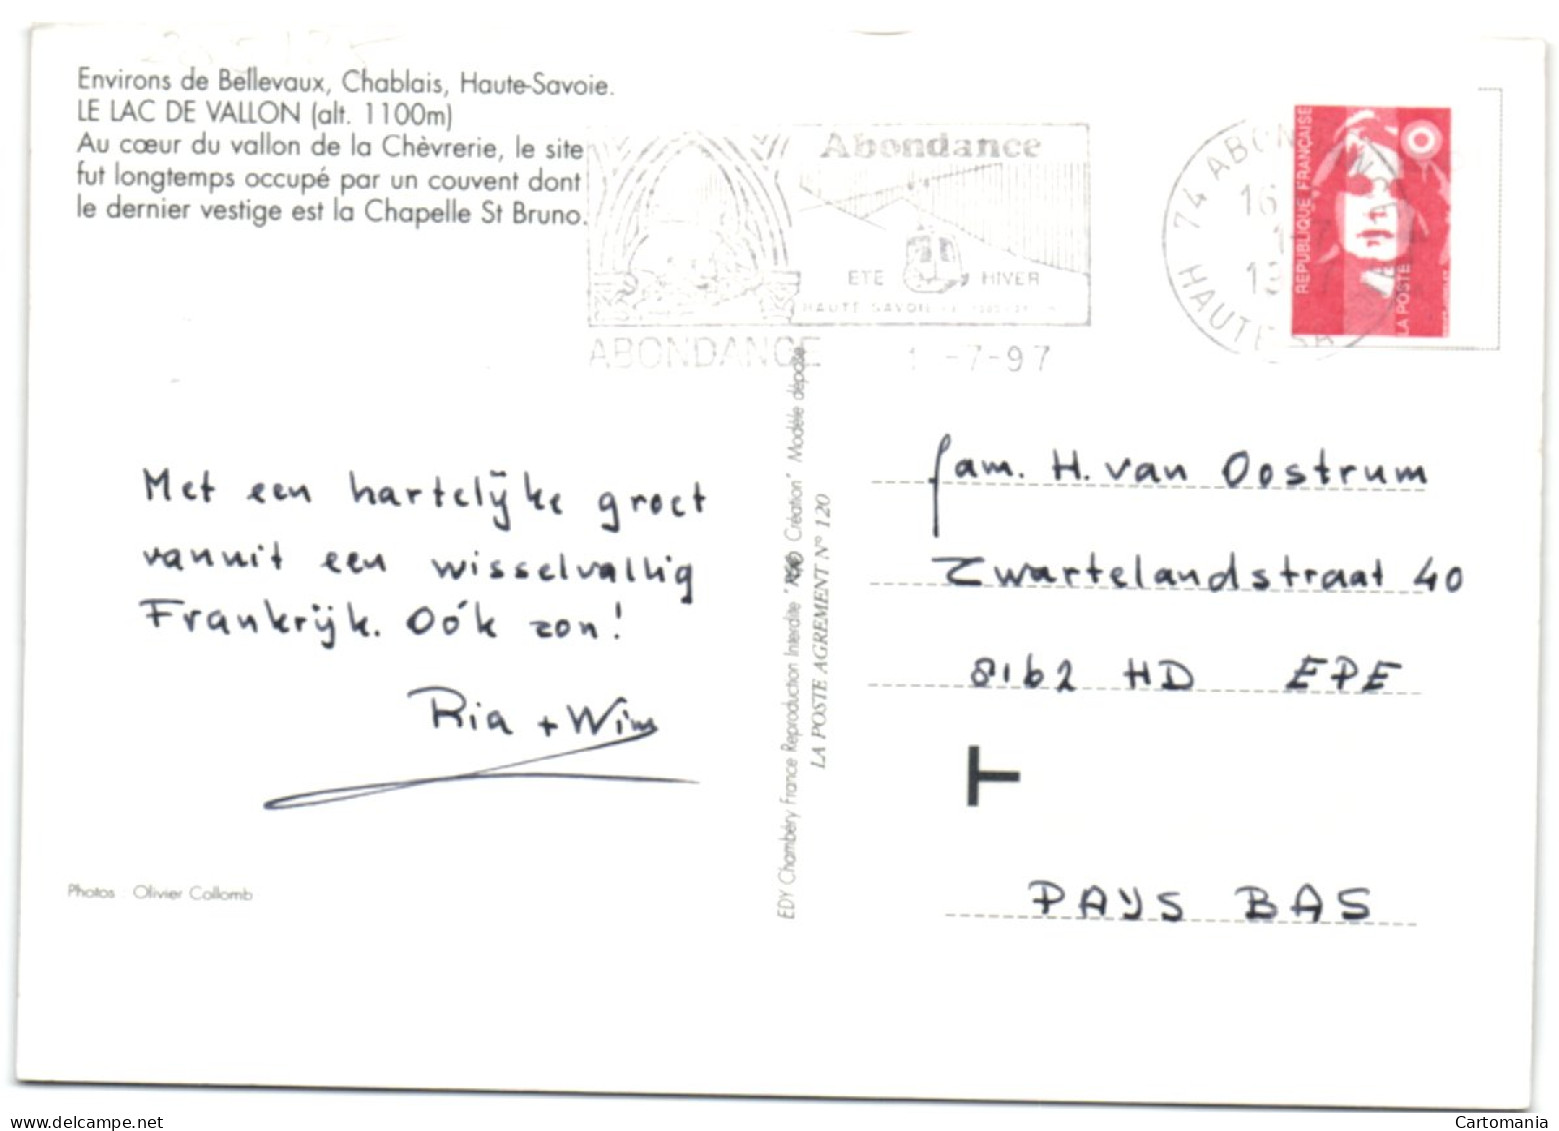 Environs de Bellevaux, Chablais, Haute-Savoie.
LE LAC DE VALLON (alt. 1100m)
Au cœur du vallon de la Chèvrerie, le site
fut longtemps occupé par un couvent dont
le dernier vestige est la Chapelle St Bruno.
Abondance
ETE HIVER
HAUTE SAVOIE
ABONDANCE 1 -7-97
74 ABON
16
1-7
13
HAUTE SA
REPUBLIQUE FRANÇAISE
LA POSTE
Met een hartelijke groet
vanuit een wisselvallig
Frankrijk. Oók zon!
Ria + Wim
Photos : Olivier Collomb
EDY Chambéry France Reproduction Interdite Création" Modèle déposé
LA POSTE AGREMENT N° 120
fam. H. van Oostrum
Zwartelandstraat 40
8162 HD EPE
T
PAYS BAS
Cartomania